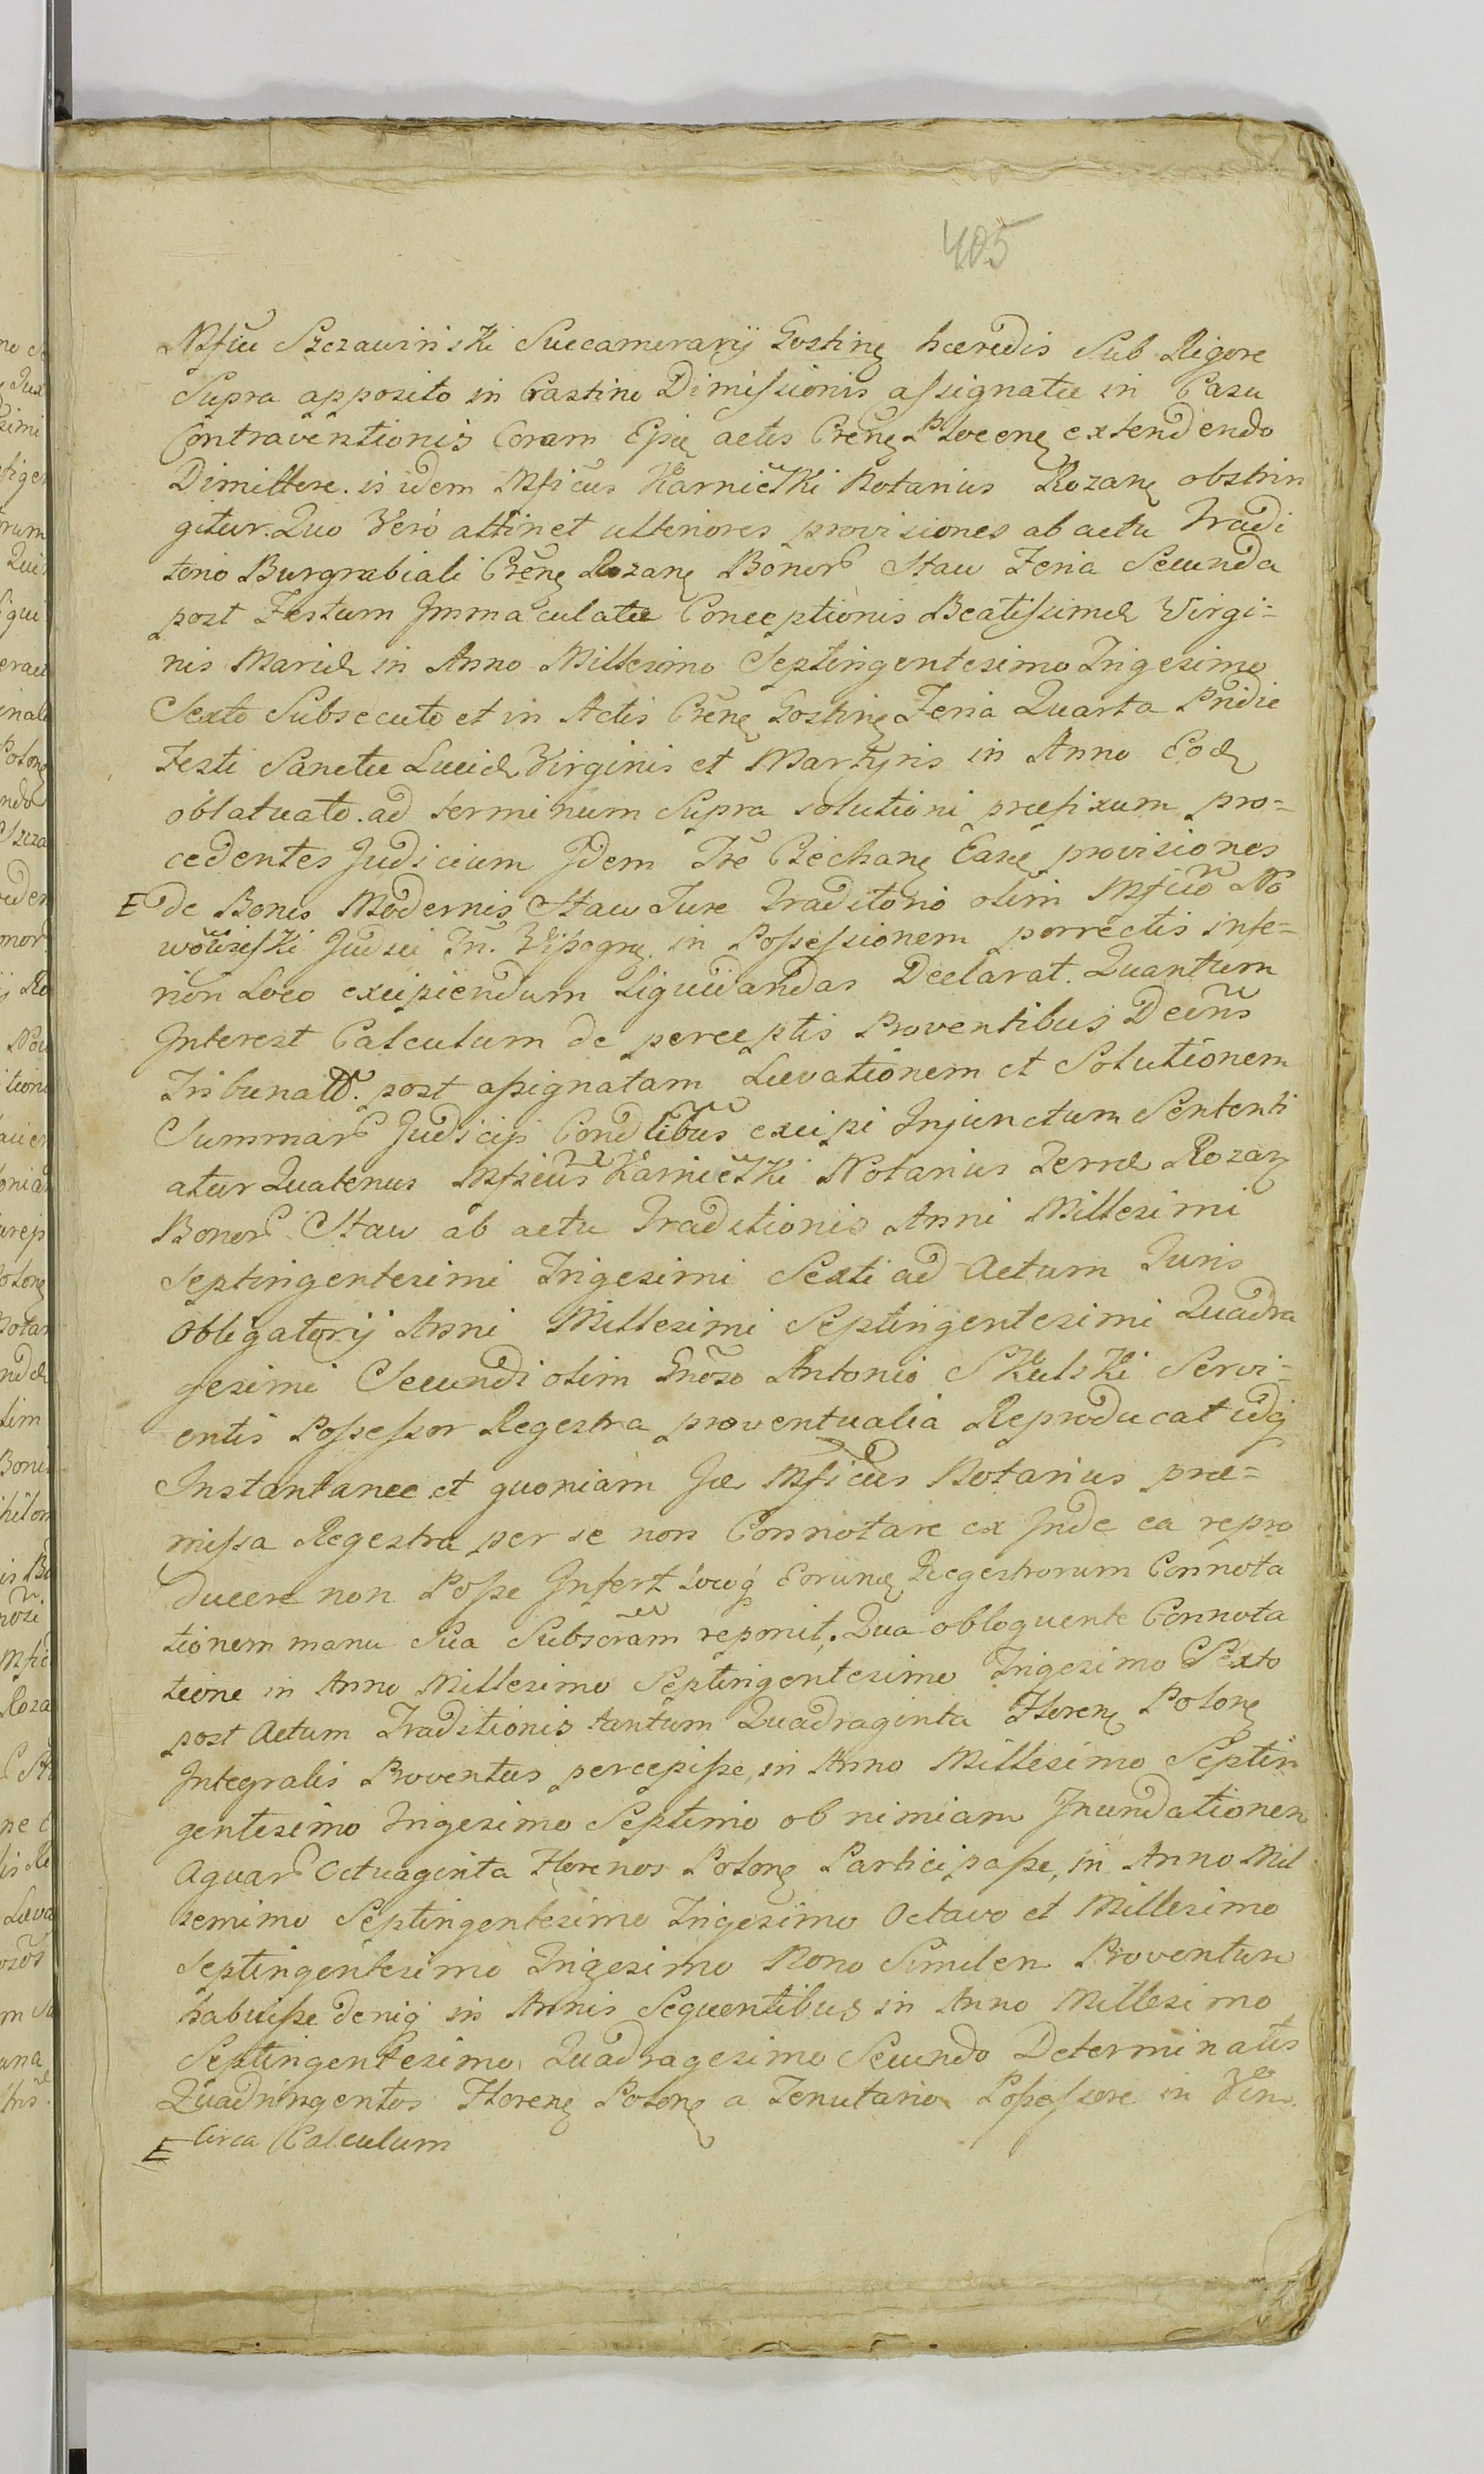 405
Mficũ Szczawiński Succamerarij Gostinę hæredis Sub Rigore
Supra apposito in Crastino Dimissionis assignatæ in Casu
Contraventionis Coram Ejsę actis Crẽnę Plocenę extendendo
Dimittere. is idem Mficus Karnicki Notarius Rozanę obstrin
gitur. Quo Verò attinet ulteriores provisiones ab actu Tradi
torio Burgrabiali Crẽnę Rozanę Bonor Staw Feria Secunda
post Festum Jmmaculatæ Conceptionis Beatissimæ Virgi=
nis Mariæ in Anno Millesimo Septingentesimo Trigesimo
Sexto Subsecuto et in Actis Crẽnę Gostinę Feria Quarta Pridie
Festi Sanctæ Luciæ Virginis et Martyris in Anno Eod
oblatuato. ad terminum Supra solutioni præfixum pro=
cedentes Judicium Jdem Tre Ciechanę Easę provisiones
E de Bonis Modernis Staw Jure Traditorio olim Mfico No
wowieski Judici Tri. Wissogrę. in Possessionem porrectis infe=
riori Loco excipiendum Liquidandas Declarat. Quantum
Interest Calculum de perceptis Proventibus Decrns
Tribunalt. post assignatam Lævationem et Solutionem
Summar Judicijs Condlibus excipi Injunctum Sententi
atur Quatenus Mficus Karnicki Notarius Terræ Rozanę
Bonor Staw ab actu Traditionis Anni Millesimi
Septingentesimi Trigesimi Sexti ad Actum Juris
Obligatorij Anni Millesimi Septingentesimi Quadra
gesimi Secundi olim Gnoso Antonio Skulski Servi=
entis Possessor Regestra proventualia Reproducat idq
Instantanee et quoniam Mficus Notarius præ=
missa Regestra per se non Connotare ex Jnde ea repro
ducere non Posse Infert locoq Eorunę Regestrorum Connota
tionem manu Sua Subscram reponit. Qua obloquente Connota
tione in Anno Millesimo Septingentesimo Trigesimo Sexto
post Actum Traditionis tantum Quadraginta Florenę Polonę
Integralis Proventus percepisse, in Anno Millesimo Septin
gentesimo Trigesimo Septimo ob nimiam Jnundationem
Aquar Octuaginta Florenos Polonę Participasse, in Anno Mil
semimo Septingentesimo Trigesimo Octavo et Millesimo
Septingentesimo Trigesimo Nono Similem Proventum
habuisse deniq in Annis Sequentibus in Anno Millesimo
Septingentesimo Quadragesimo Secundo Determinatis
Quadringentos Florenę Polonę a Tenutario Possessore in Vim
E Circa Calculum